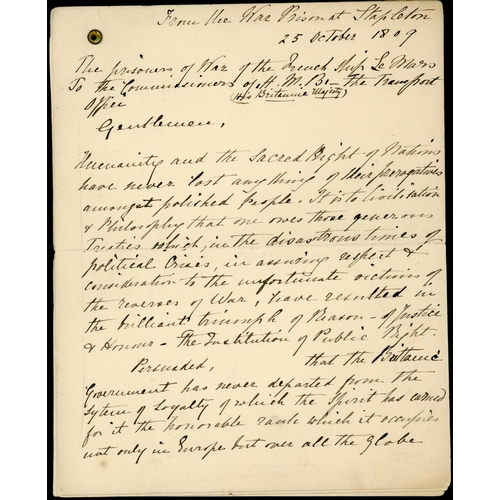 From the War Prison at Stapleton
25 October 1809
The prisoners of War of the French Ship Le Mars
To the Commissioners of H. M. Be— The Transport
(His Britannic Majesty)
Office
Gentlemen,
Humanity and the Sacred Right of Nations
have never lost anything of their prerogatives
amongst polished People. It is to Civilisation
& Philosophy that one owes those generous
Treaties which, in the disastrous times of
political Crisis, in assuring respect &
consideration to the unfortunate victims of
the reverses of War, have resulted in
the brilliant triumph of Reason – of Justice
& Honour – The Institution of Public Right.
Persuaded, that the Brittanic
Government has never departed from the
System of Loyalty of which the Spirit has earned
for it the honorable rank which it occupies
not only in Europe but over all the Globe